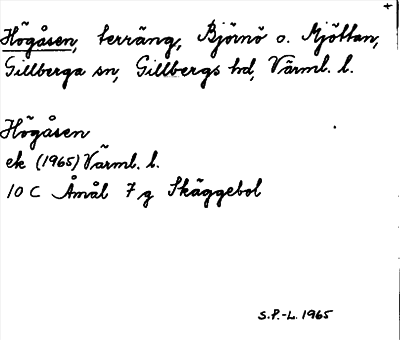 +
Högåsen, terräng, Björnö o. Mjöttan,
Gillberga sn, Gillbergs hd, Värml. l.
Högåsen
ek (1965) Värml. l.
10 C Åmål 7 g Skäggebol
S.P.-L. 1965